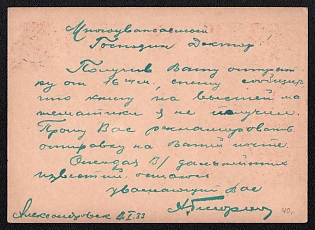 Многоуважаемый
Господин Доктор!
Получив Вашу открыт-
ку от 16 спешу сообщить
что книгу по высшей ма
тематики я не получил.
Прошу Вас рекламировать
отправку на Вашей почте.
Ожидая В/ дальнейших
известий, остаюсь
уважающий Вас
Александровск I 33
40,-